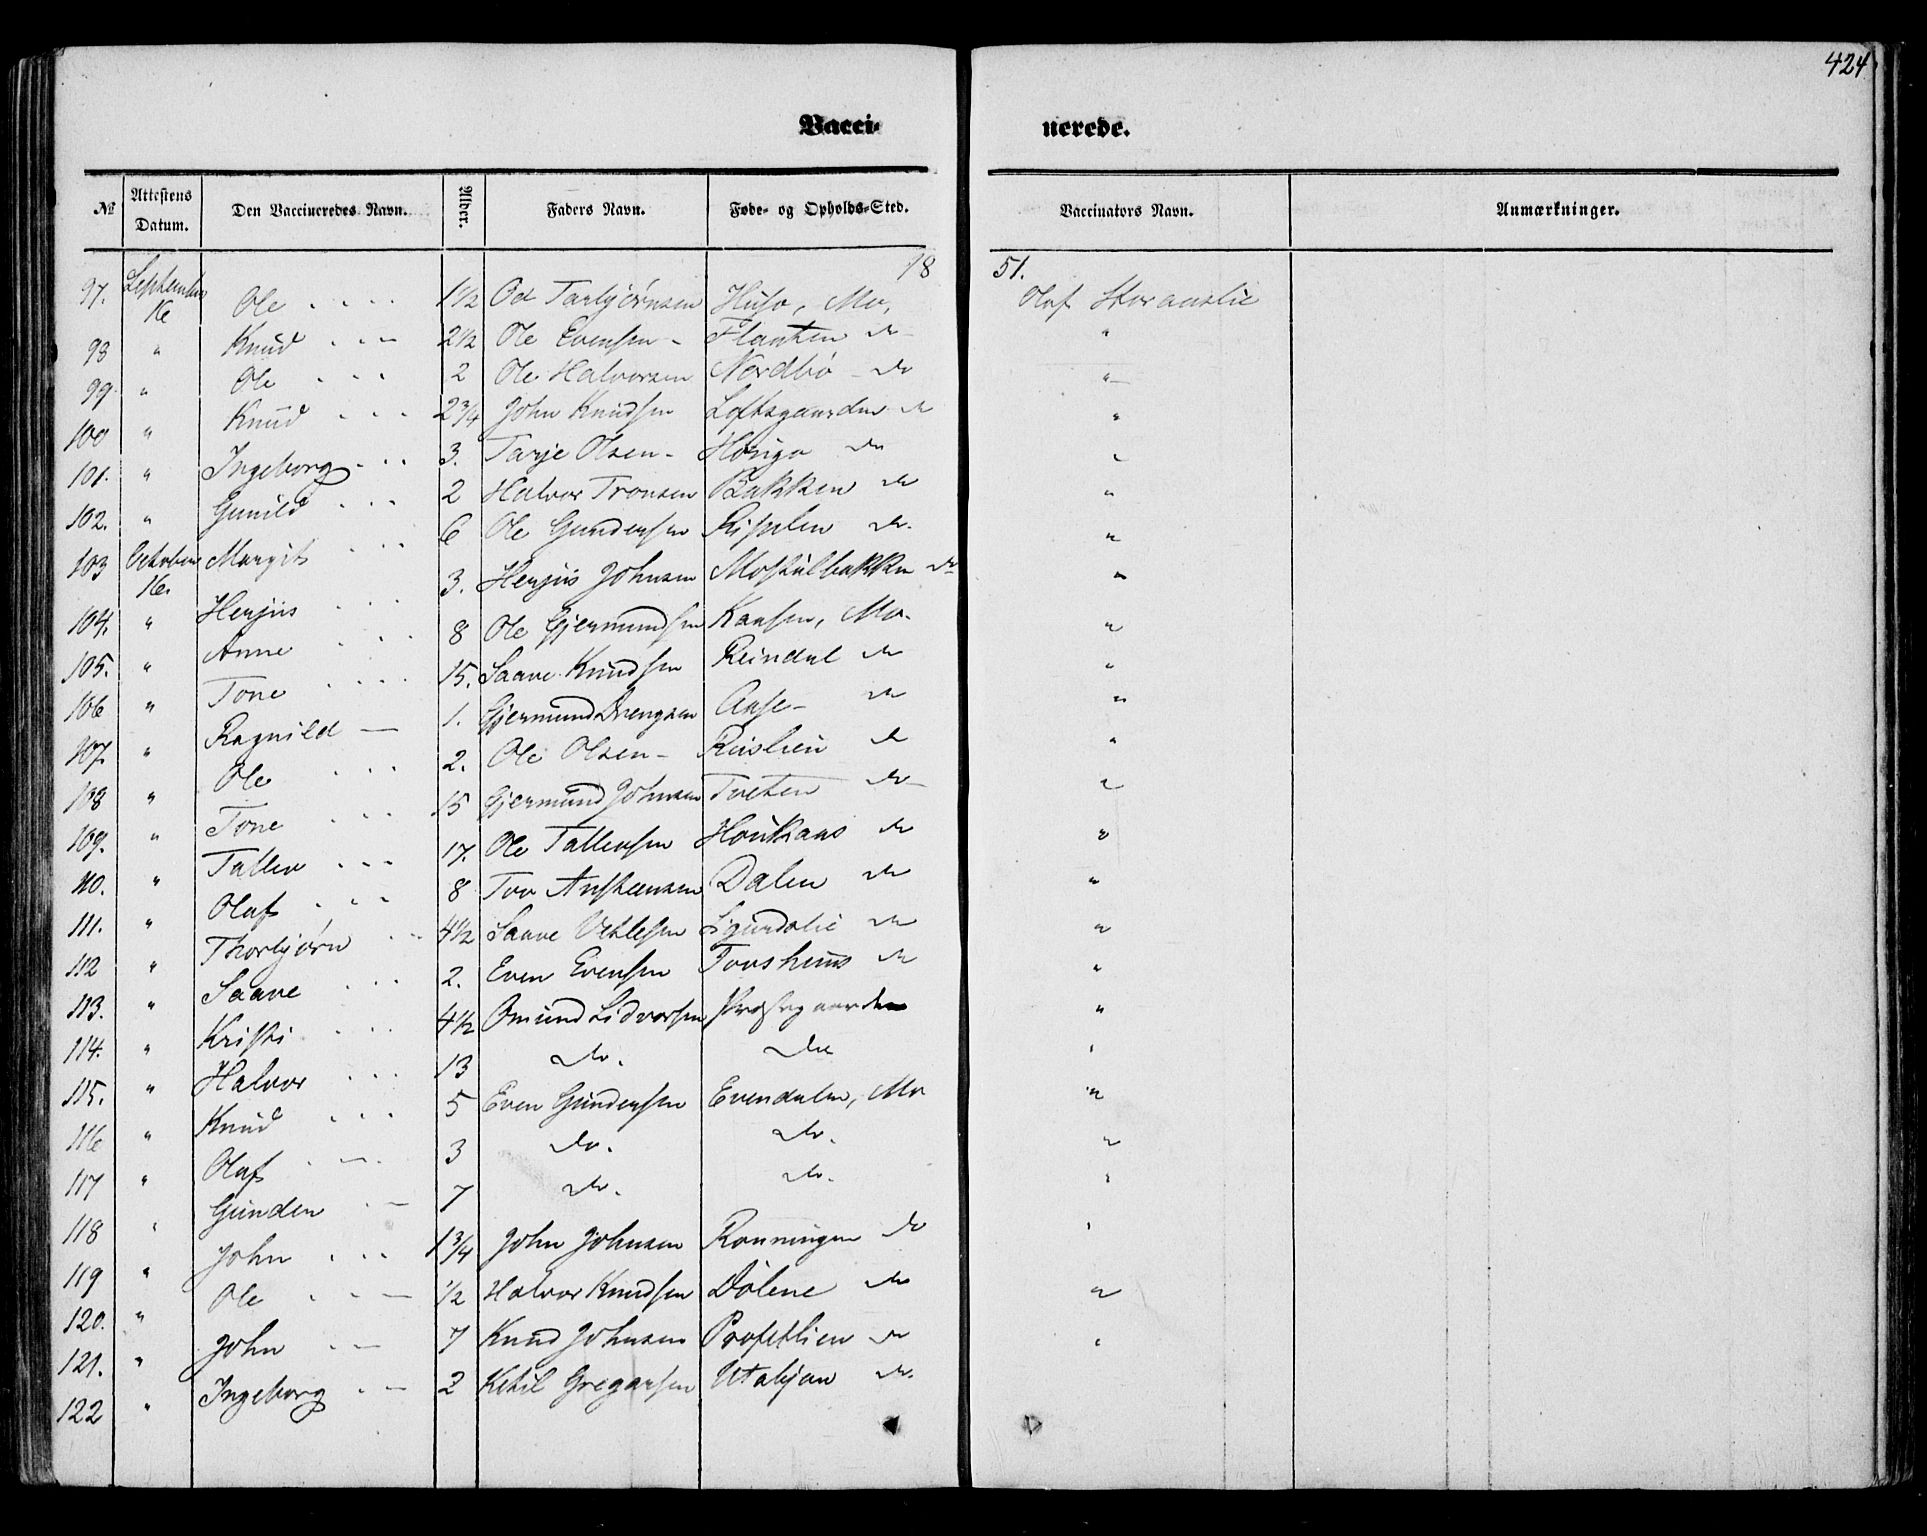 424
Vacci- nerede.
No Attestens Datum. Den Vaccineredes Navn. Alder. Faders Navn. Føde- og Opholds-Sted. Vaccinators Navn. Anmærkninger.
18 51.
97. September 16 Ole 1 1/2 Od Tarbjørnsen Huso, Mo, Olaf Storaaslie
98 " Knud 2 1/2 Ole Evensen - Flauten do "
99. " Ole 2 Ole Halvorsen Nordbø do "
100 " Knud 2 3/4 John Knudsen Loftsgaarden do "
101. " Ingeborg 3. Tarje Olsen - do "
102. " Gunild 2 Halvor Tronsen Bakken do "
103 October 16. Margit 6 Ole Gundersen do. "
104. " Herjus 3. Herjus Johnsen do "
105. " Anne 8 Ole Gjermundsen Kaasen, Mo. "
106 " Tone 15. Saave Knudsen Reindal do "
107. " Ragnild 1. Gjermund Drengsen Aase - do "
108 " Ole 2. Ole Olsen - do "
109. " Tone 15 Gjermund Johnsen Tveten do "
110. " Tallev 17. Ole Tallevsen Houkaas do "
111. " Olaf 8 Tov Anstensen Dalen do "
112 " Thorbjørn 4 1/2 Saave Vetlesen do "
113. " Saave 2. Even Evensen Tovshuus do "
114. " Kristi 4 1/2 Omund Lidvorsen Præstgaarden "
115. " Halvor 13 do. do "
116 " Knud 5 Even Gundersen Evendalen, Mo "
117 " Olaf 3 do. do. "
118 " Gunder 7 do. do. "
119 " John 1 3/4 John Johnsen Rønningen do "
120. " Ole 1/2 Halvor Knudsen Dølene do "
121. " John 7 Knud Johnsen do "
122 " Ingeborg 2 Ketil Gregarsen Utabjaa do.